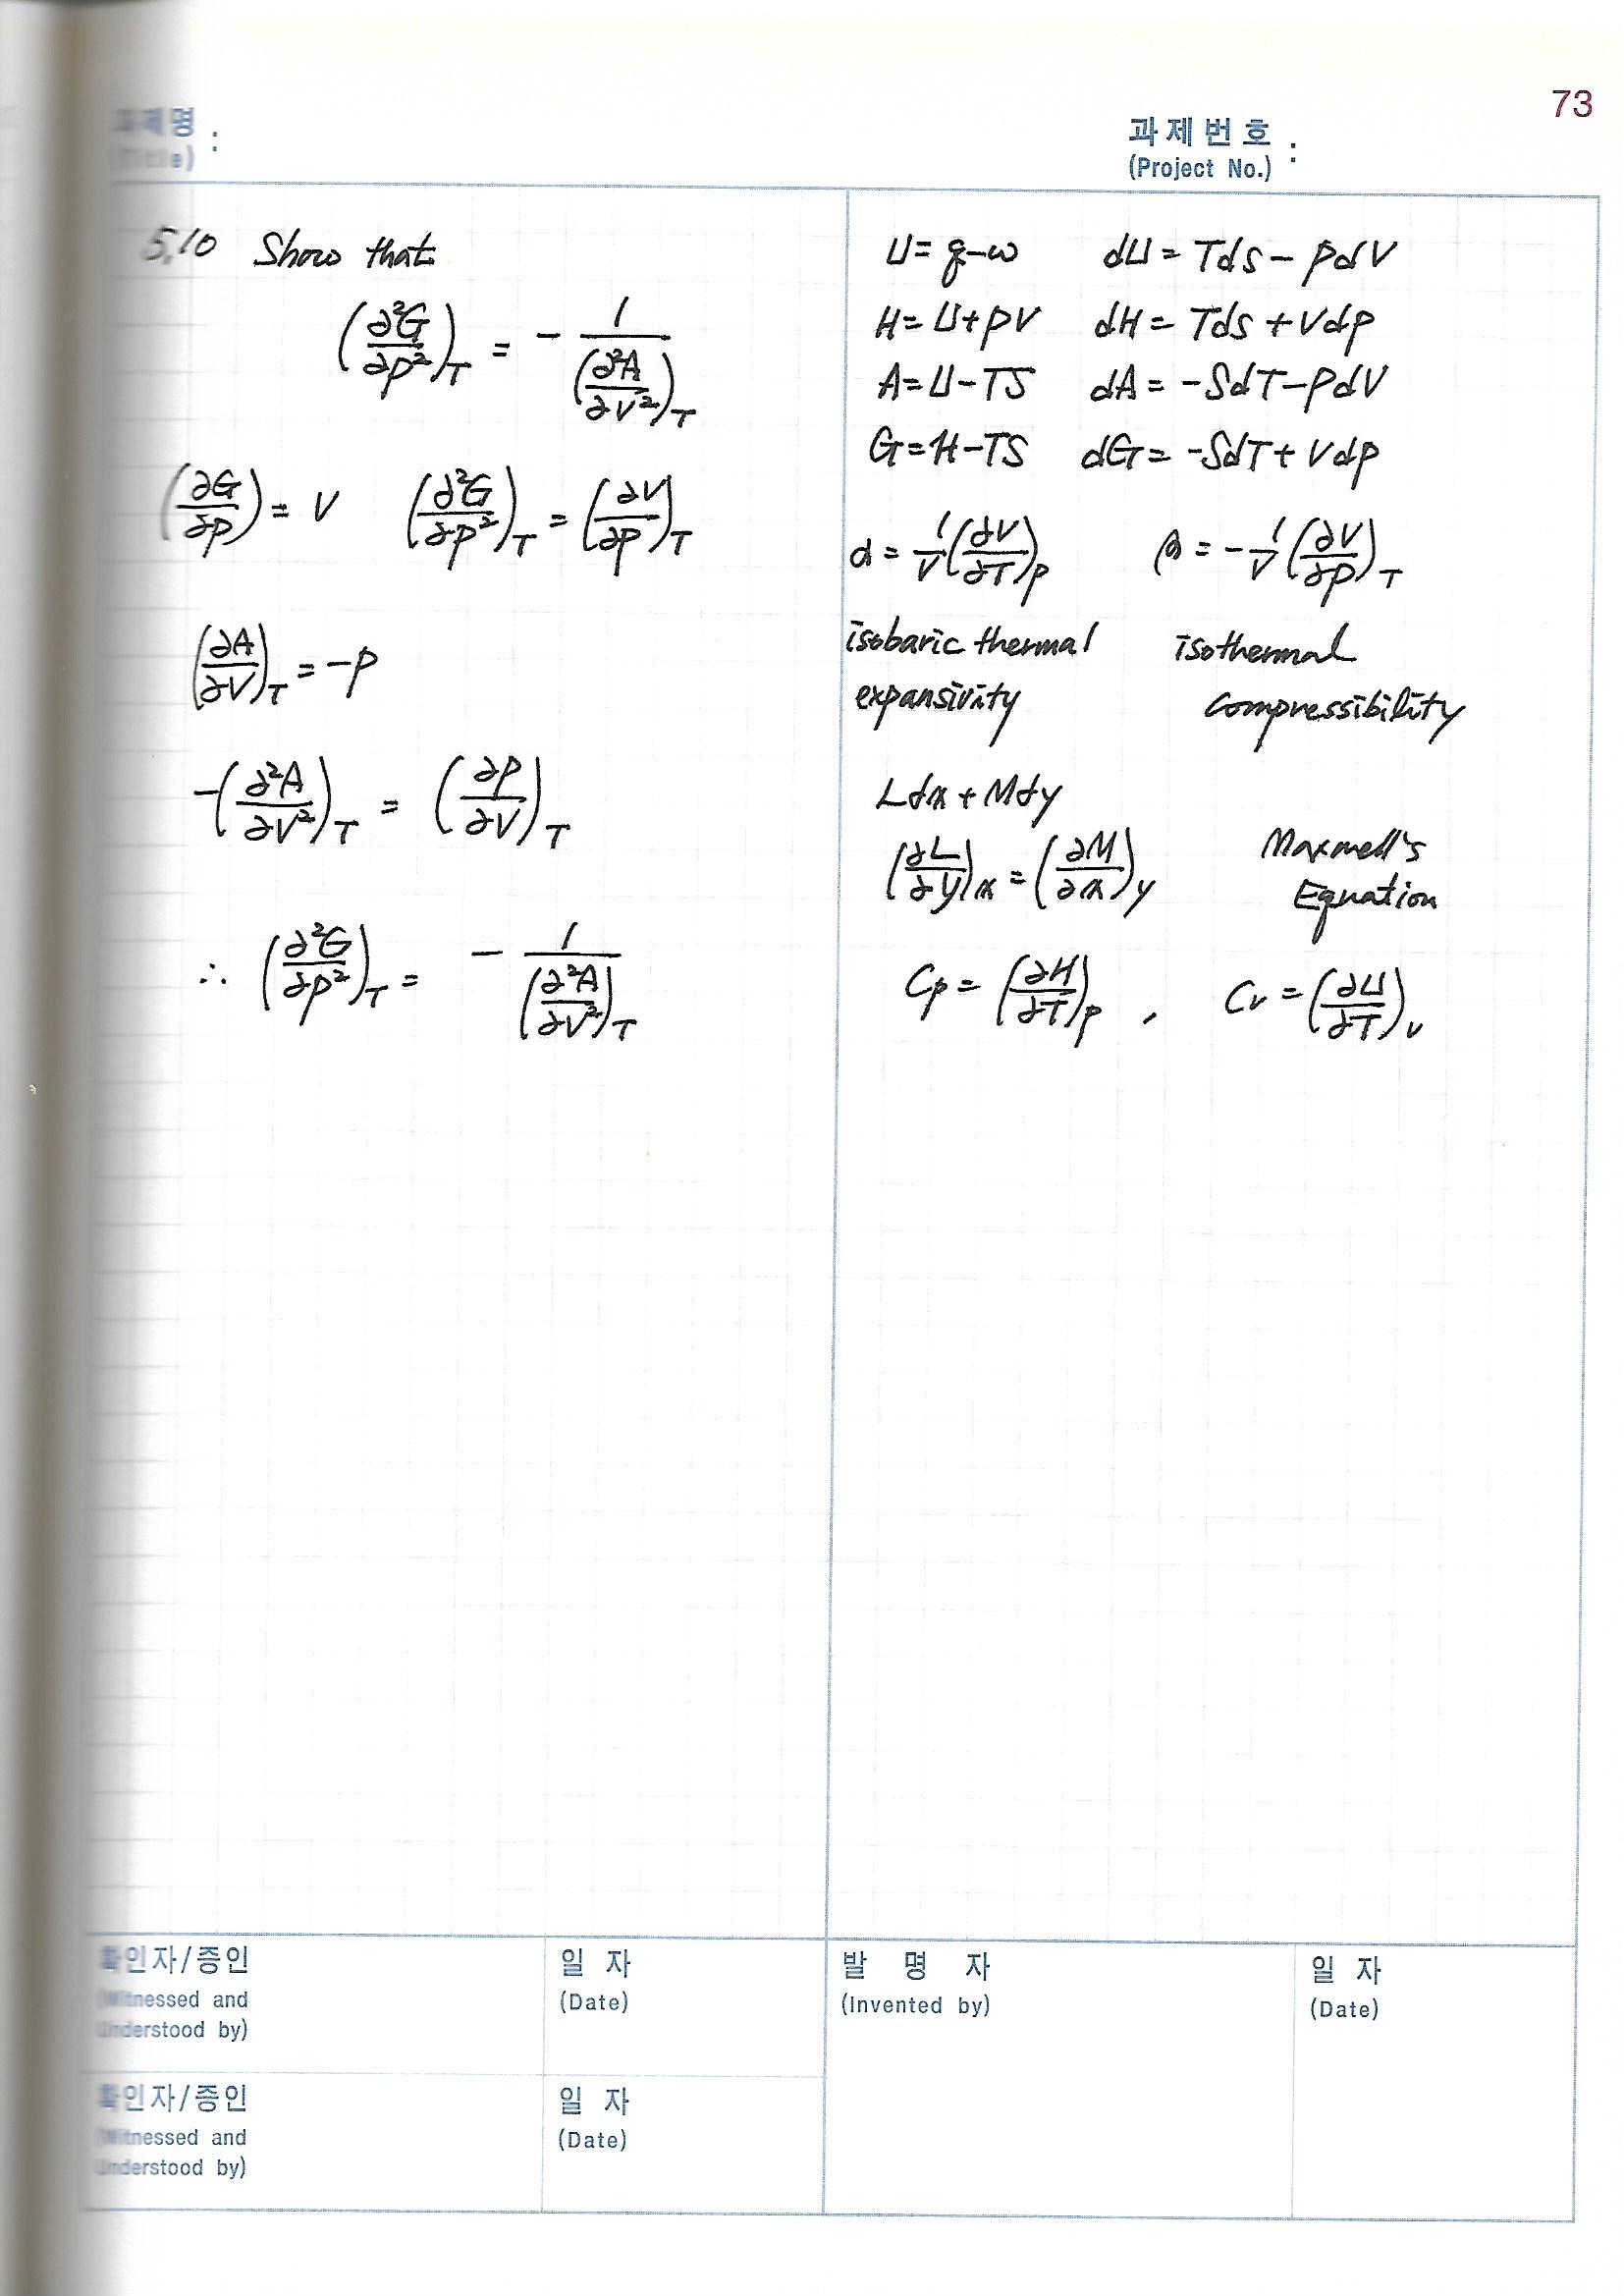 73
과제명 :
(Title)
과제번호 :
(Project No.)
5.10 Show that
(∂²G/∂P²)_T = - 1/(∂²A/∂V²)_T
(∂G/∂P) = V (∂²G/∂P²)_T = (∂V/∂P)_T
(∂A/∂V)_T = -P
-(∂²A/∂V²)_T = (∂P/∂V)_T
∴ (∂²G/∂P²)_T = - 1/(∂²A/∂V²)_T
U = q-w dU = TdS - PdV
H = U+PV dH = TdS + VdP
A = U-TS dA = -SdT-PdV
G = H-TS dG = -SdT + VdP
α = 1/V (∂V/∂T)_P β = - 1/V (∂V/∂P)_T
isobaric thermal isothermal
expansivity compressibility
Ldx + Mdy
(∂L/∂y)_x = (∂M/∂x)_y Maxwell's
Equation
Cp = (∂H/∂T)_P , Cv = (∂U/∂T)_V
확인자/증인
(Witnessed and
Understood by)
일 자
(Date)
발 명 자
(Invented by)
일 자
(Date)
확인자/증인
(Witnessed and
Understood by)
일 자
(Date)